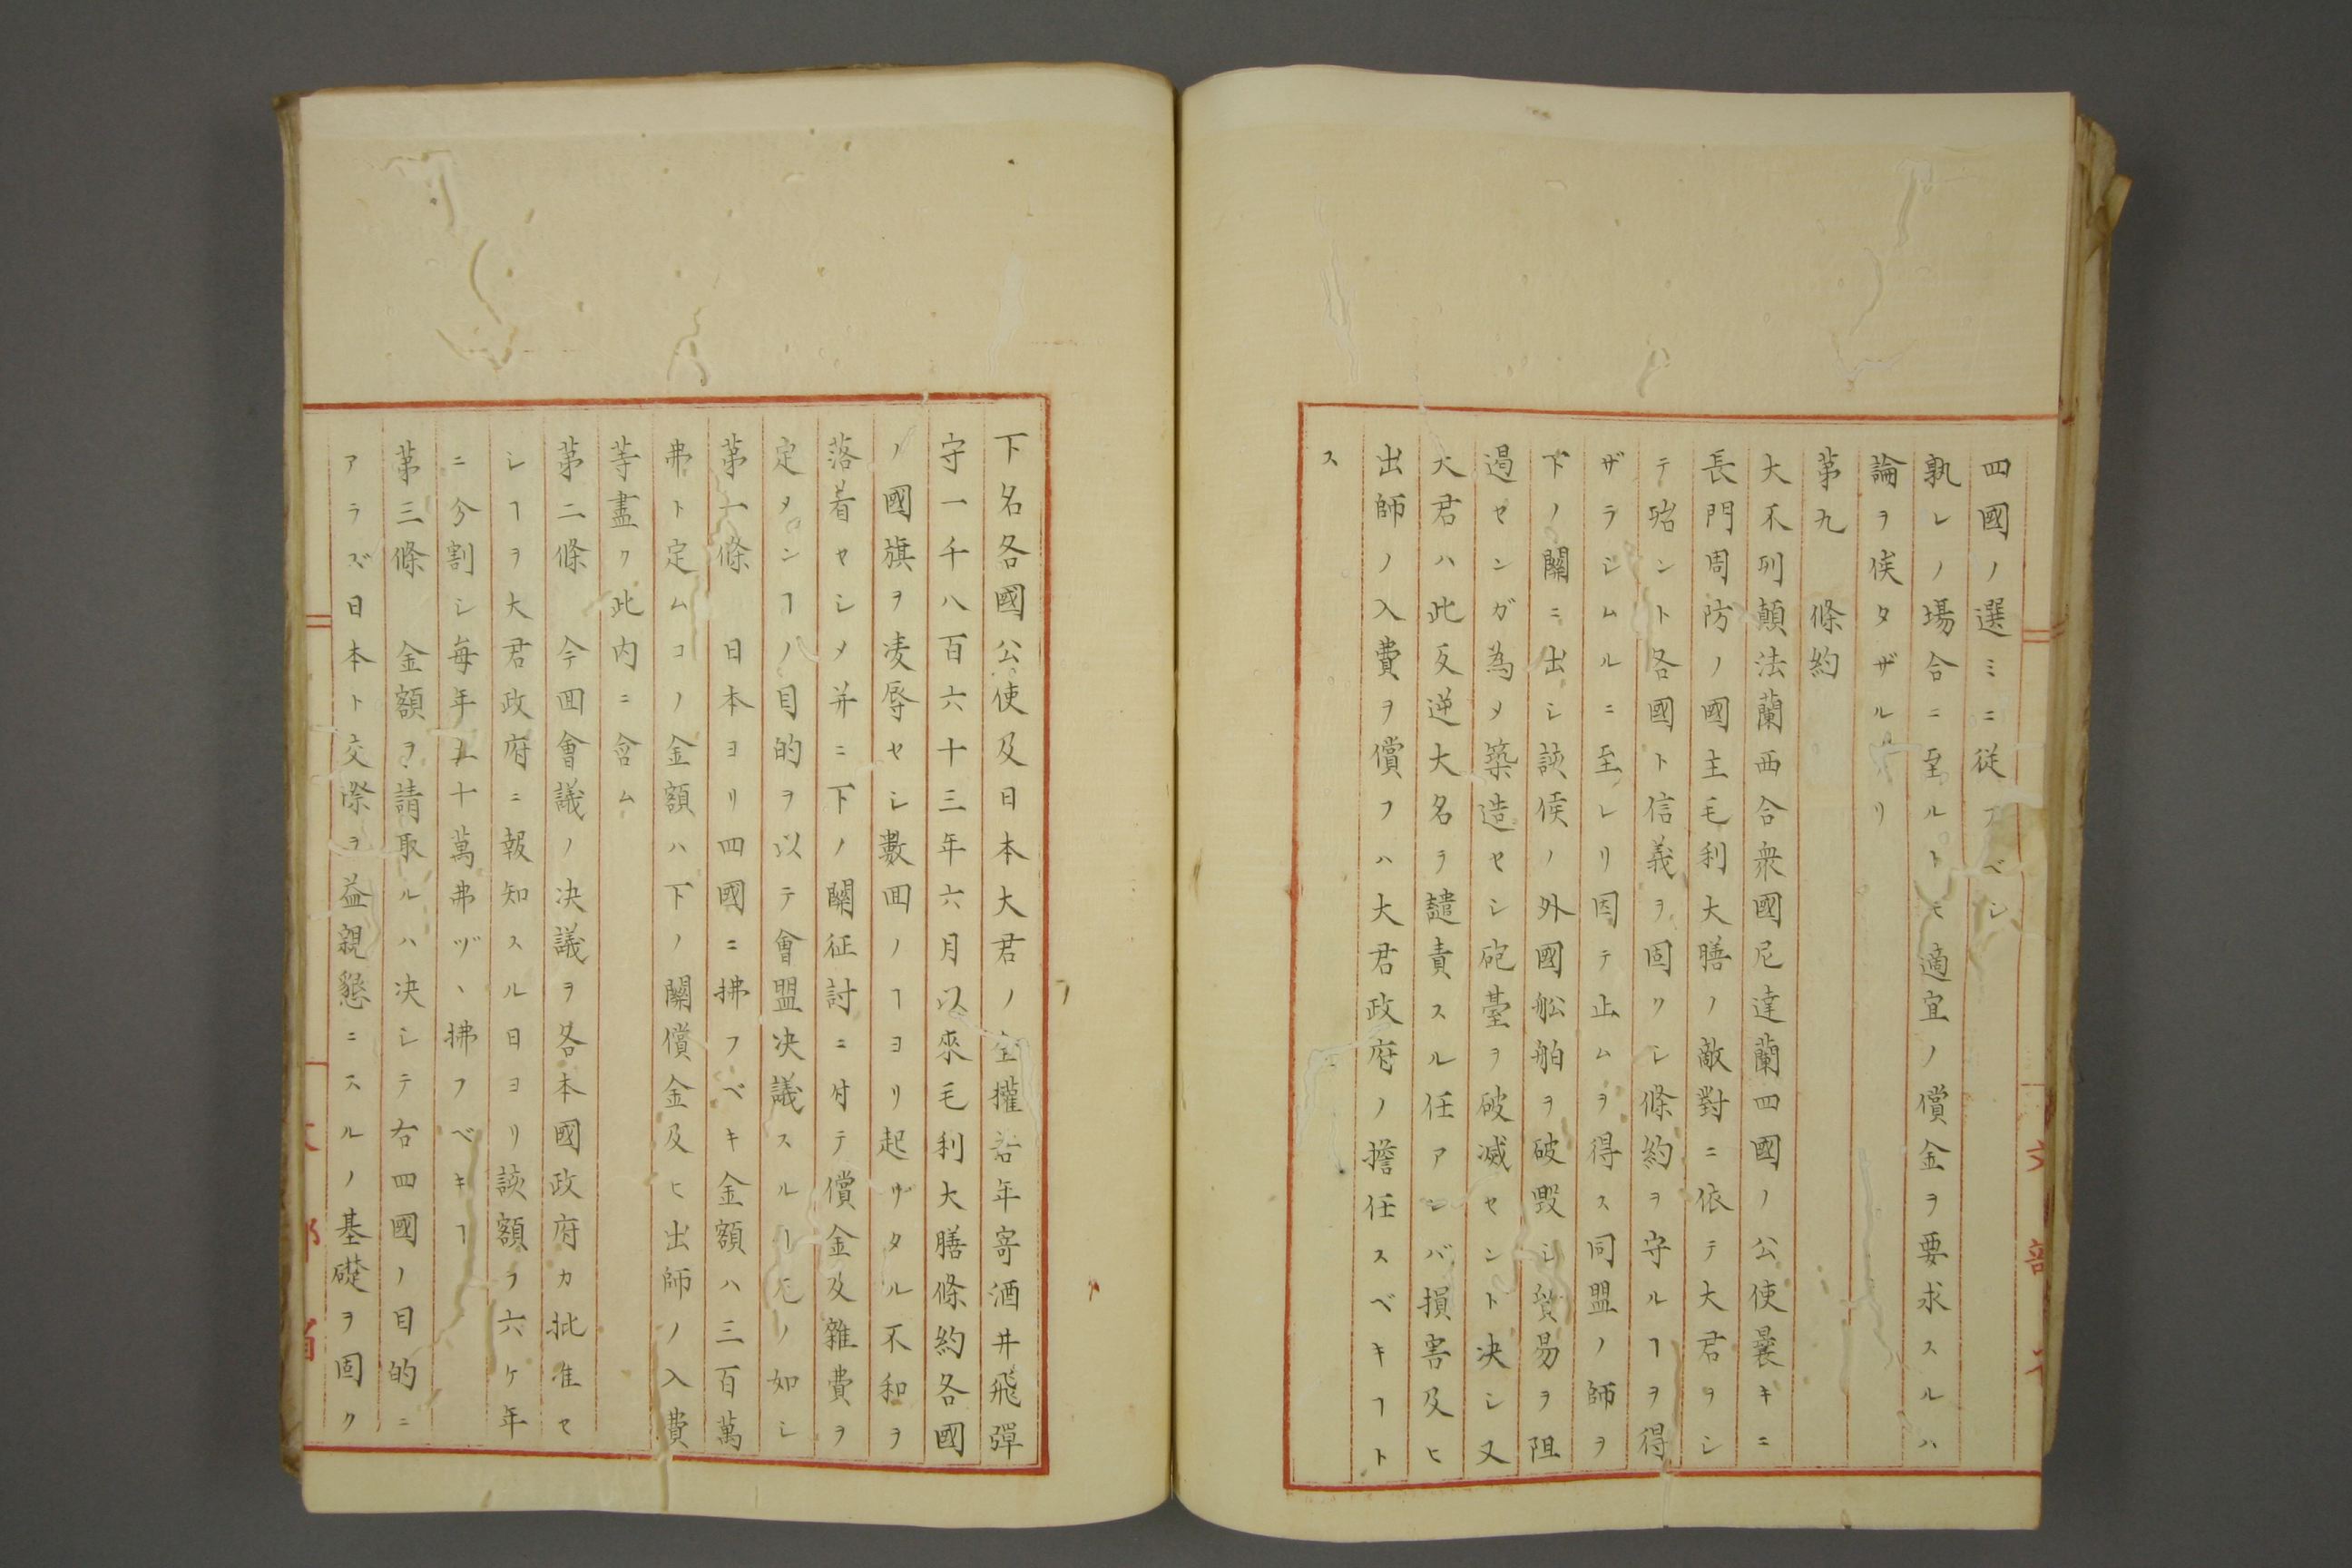 四國ノ選ミニ従フベシ
孰レノ場合ニ至ルトモ適宜ノ償金ヲ要求スルハ
論ヲ俟タザルナリ
第九 條約
大不列顛法蘭西合衆國尼達蘭四國ノ公使曩キニ
長門周防ノ國主毛利大膳ノ敵對ニ依テ大君ヲシ
テ殆ント各國ト信義ヲ固クシ條約ヲ守ルヿヲ得
ザラシムルニ至レリ因テ止ムヲ得ス同盟ノ師ヲ
下ノ關ニ出シ該侯ノ外國舩舶ヲ破毀シ貿易ヲ阻
遏センガ為メ築造セシ砲臺ヲ破滅セント决シ又
大君ハ此反逆大名ヲ譴責スル任アレバ損害及ヒ
出師ノ入費ヲ償フハ大君政府ノ擔任スベキヿト
ス
下名各國公使及日本大君ノ全權若年寄酒井飛彈
守一千八百六十三年六月以來毛利大膳條約各國
ノ國旗ヲ凌辱セシ數囬ノヿヨリ起リタル不和ヲ
落着セシメ并ニ下ノ關征討ニ付テ償金及雜費ヲ
定メンヿノ目的ヲ以テ會盟决議スルヿ左ノ如シ
第一條 日本ヨリ四國ニ拂フベキ金額ハ三百萬
弗ト定ムコノ金額ハ下ノ關償金及ヒ出師ノ入費
等盡ク此内ニ含ム
第二條 今囬會議ノ决議ヲ各本國政府カ批准セ
シヿヲ大君政府ニ報知スル日ヨリ該額ヲ六ケ年
ニ分割シ毎年五十萬弗ヅヽ拂フベキヿ
第三條 金額ヲ請取ルハ决シテ右四國ノ目的ニ
アラズ日本ト交際ヲ益親懇ニスルノ基礎ヲ固ク
文部省